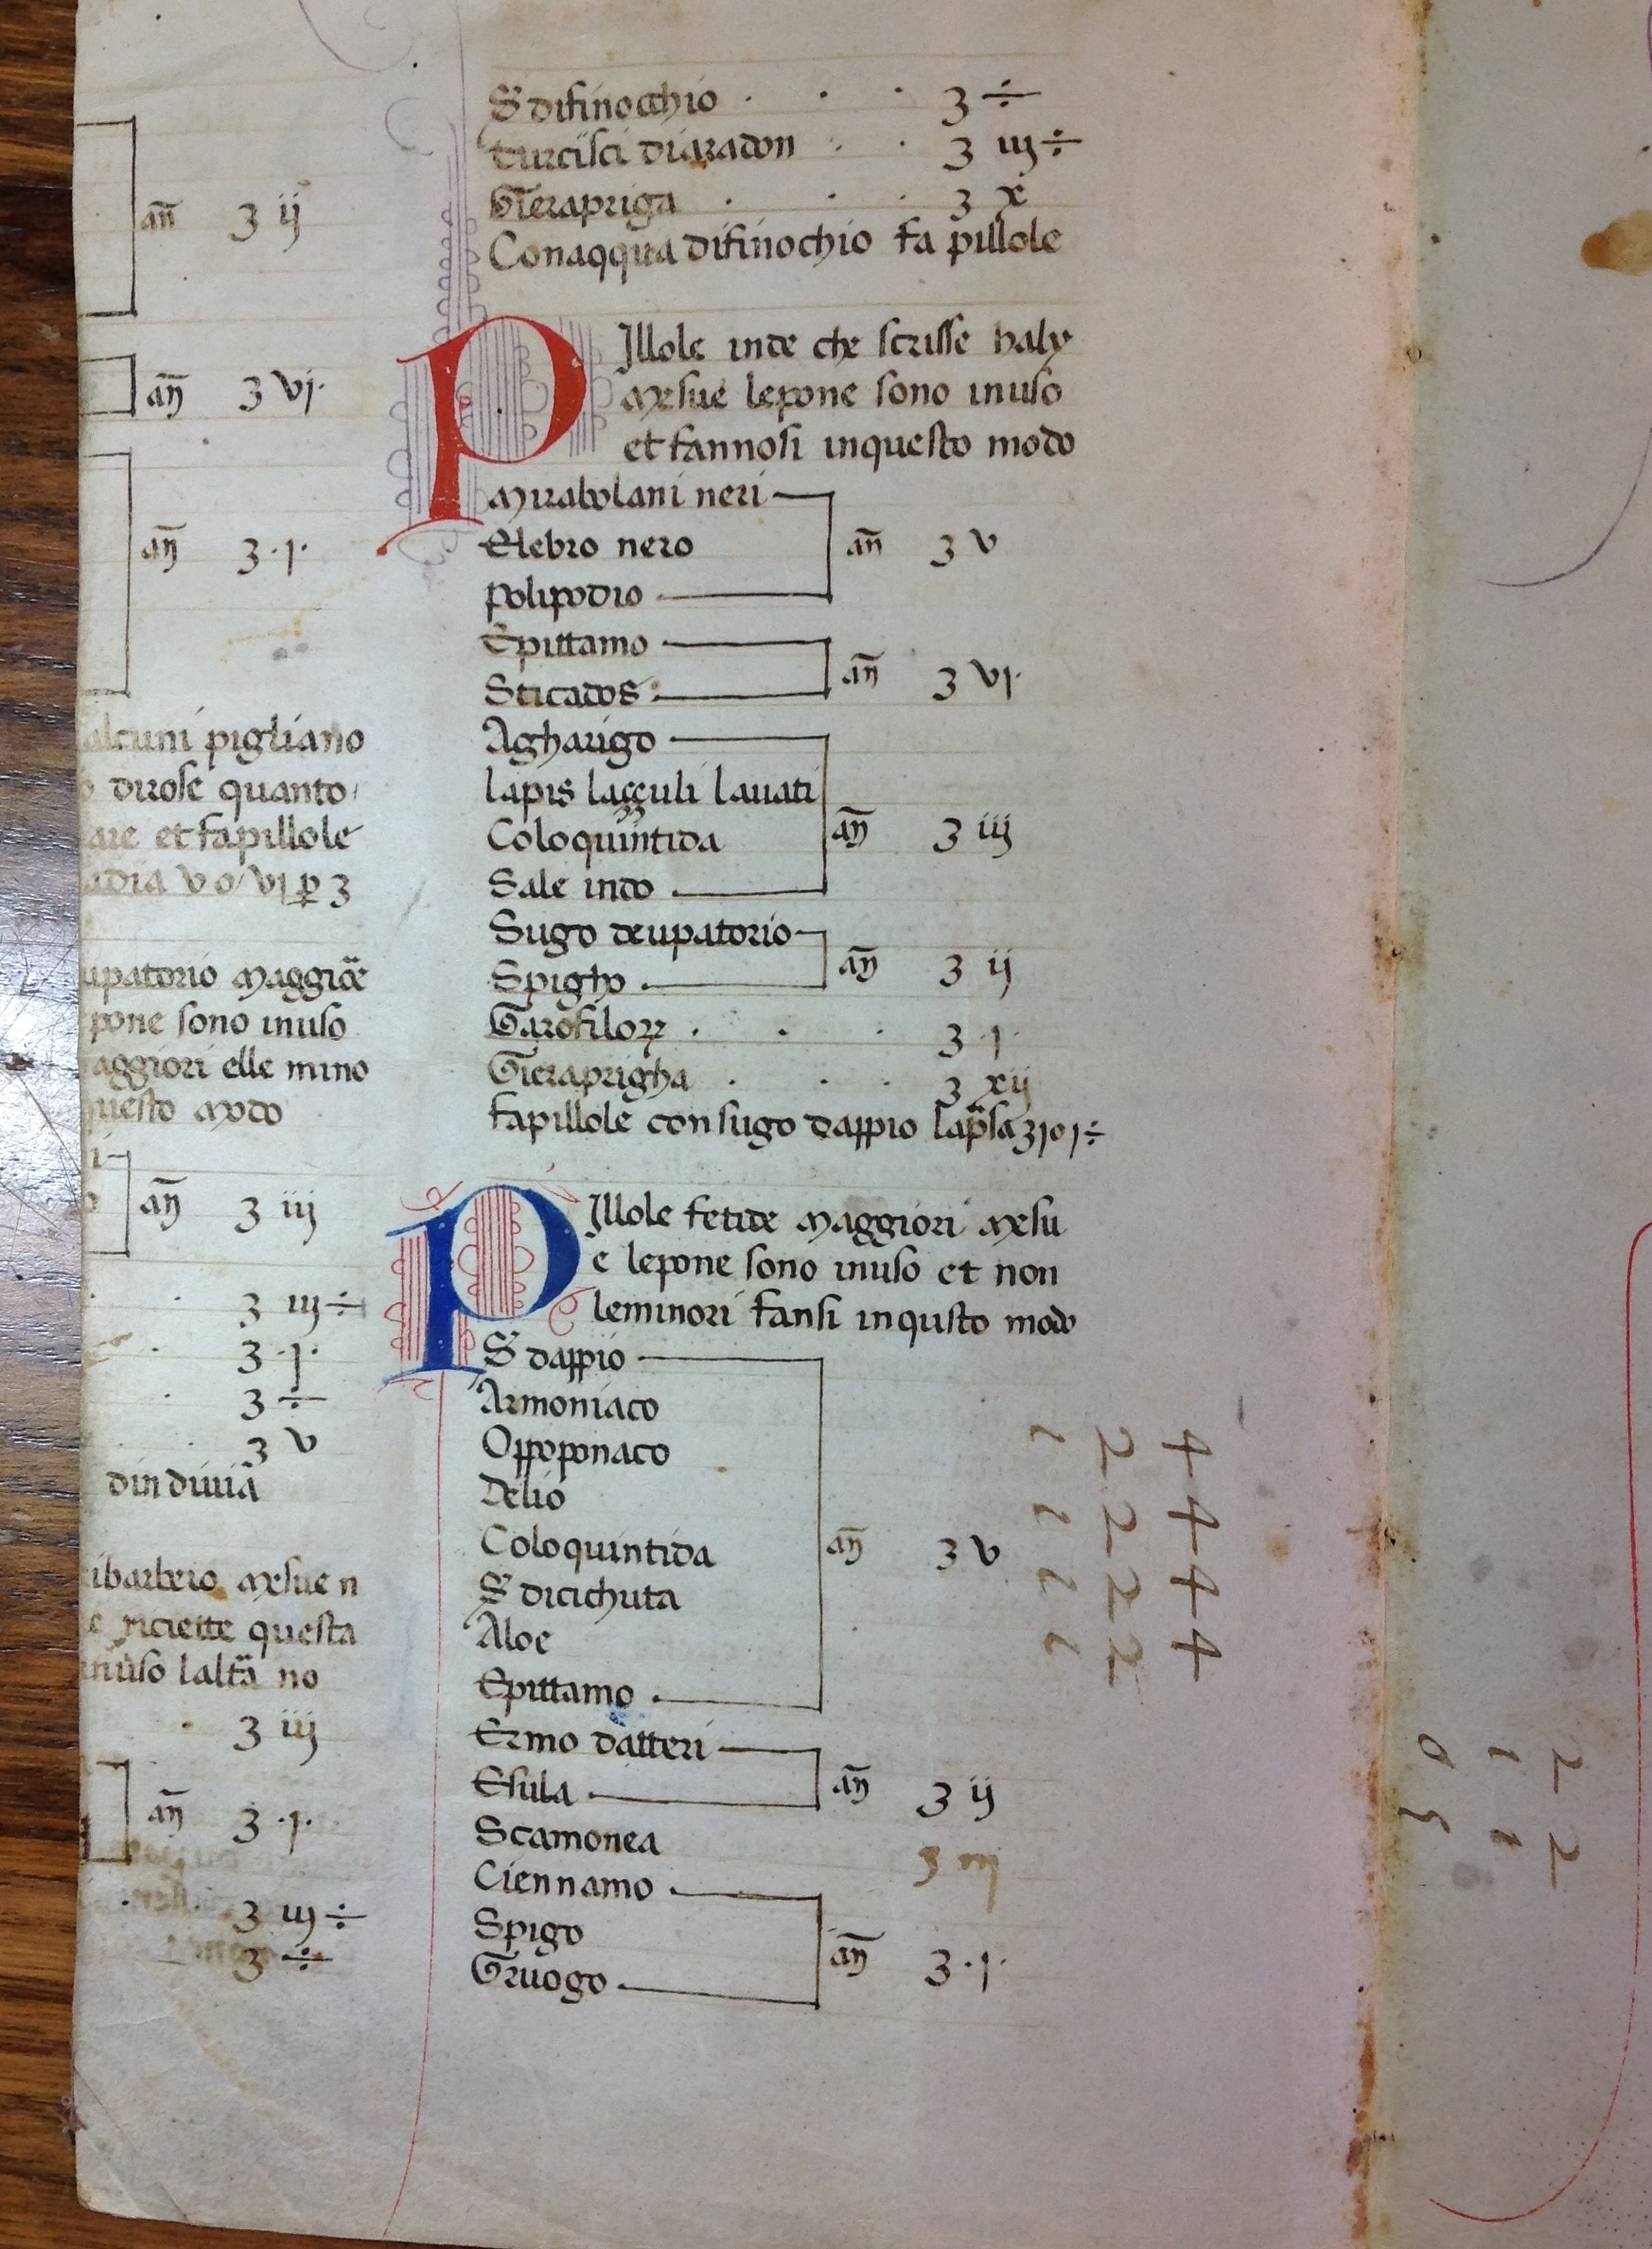 añ ʒ ij
añ ʒ vj·
añ ʒ ·j·
alcuni pigliano
dirose quanto
are et fapillole
adia v o vj ꝑ ʒ
upatorio maggioē
pone sono inuso
aggiori elle mino
questo modo
añ ʒ iij
ʒ iij ÷
ʒ ·j·
ʒ ÷
ʒ v
dindiuiā
ibarbero mesue n
riciette questa
inuso laltā no
ʒ iij
añ ʒ ·j·
ʒ iij ÷
ʒ ÷
S difinocchio ʒ ÷
turcisci diaradon ʒ iij ÷
Gierapriga ʒ x
Conaqqua difinochio fa pillole
PIllole inde che scrisse haly
mesue lepone sono inuso
et fannosi inquesto modo
mirabolani neri
Elebro nero añ ʒ v
polipodio
Epittamo
Sticados añ ʒ vj·
Agharigo
lapis laççuli lauati
Coloquintida añ ʒ iij
Sale indo
Sugo deupatorio
Spigho añ ʒ ij
Garofiloꝝ ʒ ·j·
Gieraprigha ʒ xij
fapillole con sugo dappio lap̃sa ʒ j o j ÷
PIllole fetide maggiori mesu
e lepone sono inuso et non
leminori fansi inqusto modo
S dappio
Armoniaco
Oppoponaco
Delio
Coloquintida añ ʒ v
S dicichuta
Aloe
Epittamo
Ermo datteri
Esula añ ʒ ij
Scamonea ʒ iij
Ciennamo
Spigo añ ʒ ·j·
Gruogo
2 4
2 4
2 4
2 4
2
2